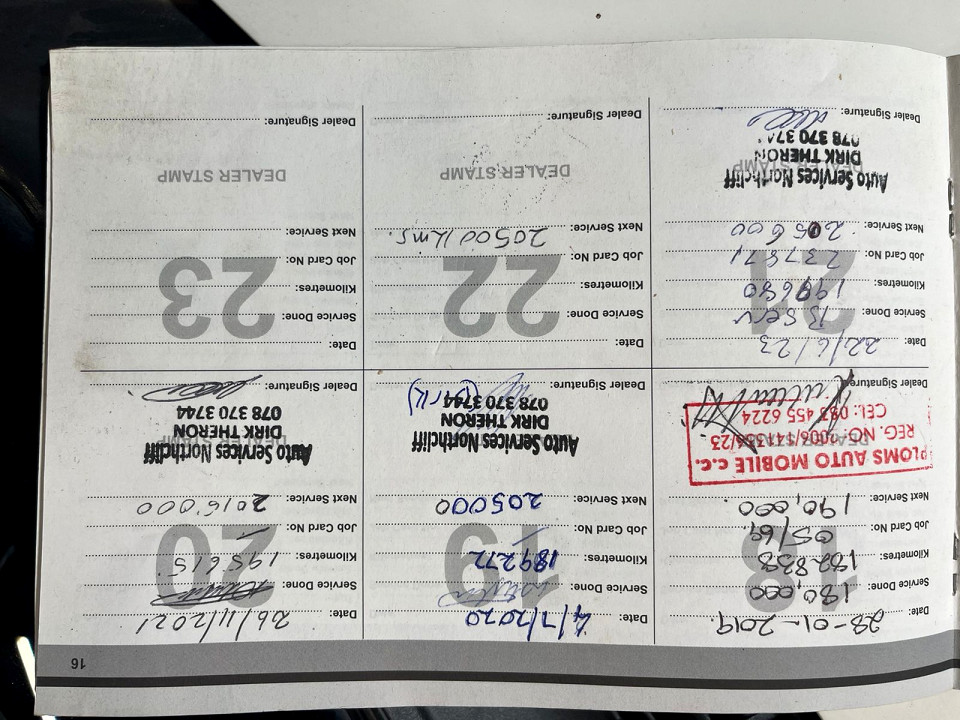 16
18
Date: 28-01-2019.
Service Done: 180,000
Kilometres: 182838
Job Card No: 05/69.
Next Service: 190,000.
DEALER STAMP
PLOMS AUTO MOBILE c.c.
REG. NO.
CEL: 083 455 6224
Dealer Signature:
19
Date: 4/7/2020
Service Done:
Kilometres: 189272
Job Card No: -
Next Service: 205000
DEALER STAMP
Auto Services Northcliff
DIRK THERON
078 370 3744
(Dirk)
Dealer Signature:
20
Date: 26/11/2021
Service Done:
Kilometres: 195615.
Job Card No: -
Next Service: 2016000
DEALER STAMP
Auto Services Northcliff
DIRK THERON
078 370 3744
Dealer Signature:
21
Date: 22/6/23
Service Done: B Serv
Kilometres: 198680
Job Card No: 237871
Next Service: 205600
DEALER STAMP
Auto Services Northcliff
DIRK THERON
078 370 374
Dealer Signature:
22
Date:
Service Done:
Kilometres:
Job Card No:
Next Service: 20500 Kms.
DEALER STAMP
Dealer Signature:
23
Date:
Service Done:
Kilometres:
Job Card No:
Next Service:
DEALER STAMP
Dealer Signature: